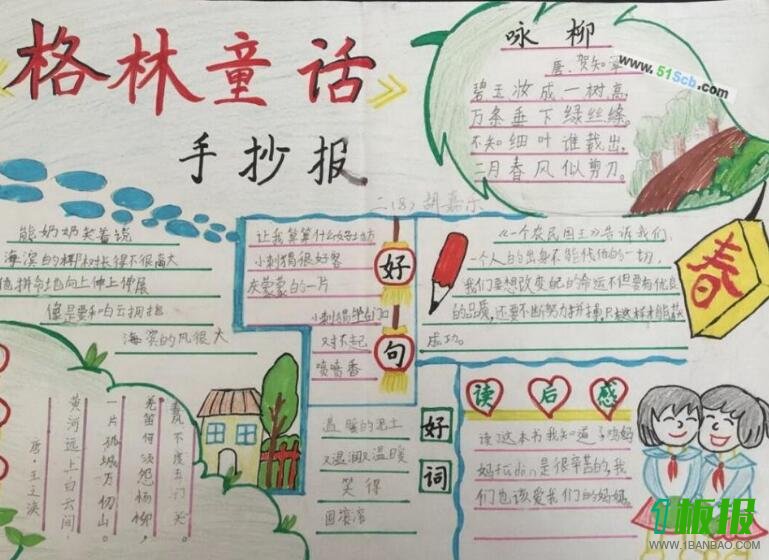 格林童话
手抄报
咏柳
唐.贺知章
碧玉妆成一树高,
万条垂下绿丝绦。
不知细叶谁裁出,
二月春风似剪刀。
www.51Scb.com
二(8)胡嘉乐
熊奶奶笑着说
海滨的椰树长得不很高大
地向上伸上伸展
像是要和白云拥抱
海滨的风很大
让我算算什么好
小刺猬很好客
灰蒙蒙的一片
小刺猬
对不起
喷喷香
好
句
《一个农民国王》告诉我们,
一个人的出身不能代他的一切,
我们要想改变的命运不但要有优良
的品质,还要不断努力拼搏,只这样才能获
成功。
春
春风不度玉门关。
羌笛何须怨杨柳,
一片孤城万仞山。
黄河远上白云间,
唐·王之涣
温暖的泥土
又温润又温暖
笑得
圆滚滚
好
词
读后感
读了这本书我知道了鸡妈
妈拉dan是很辛苦的,我
们也该爱我们的妈妈。
板报
WWW.1BANBAO.COM